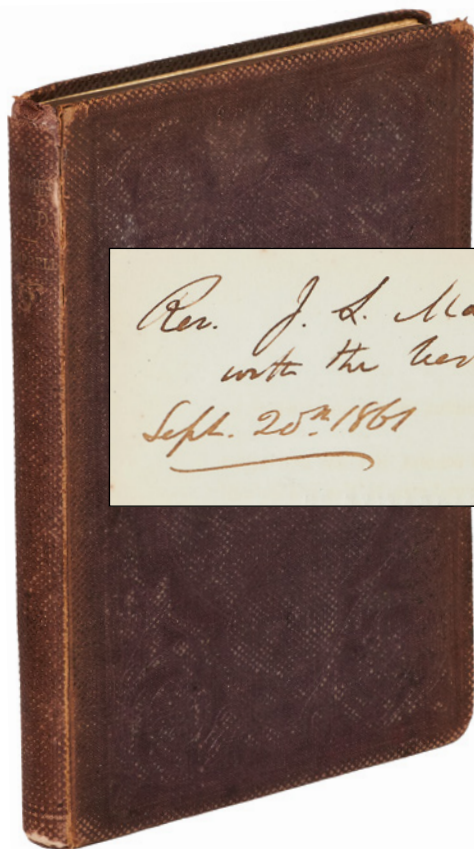 Rev. J. L. Ma
with the
Sept. 20th 1861